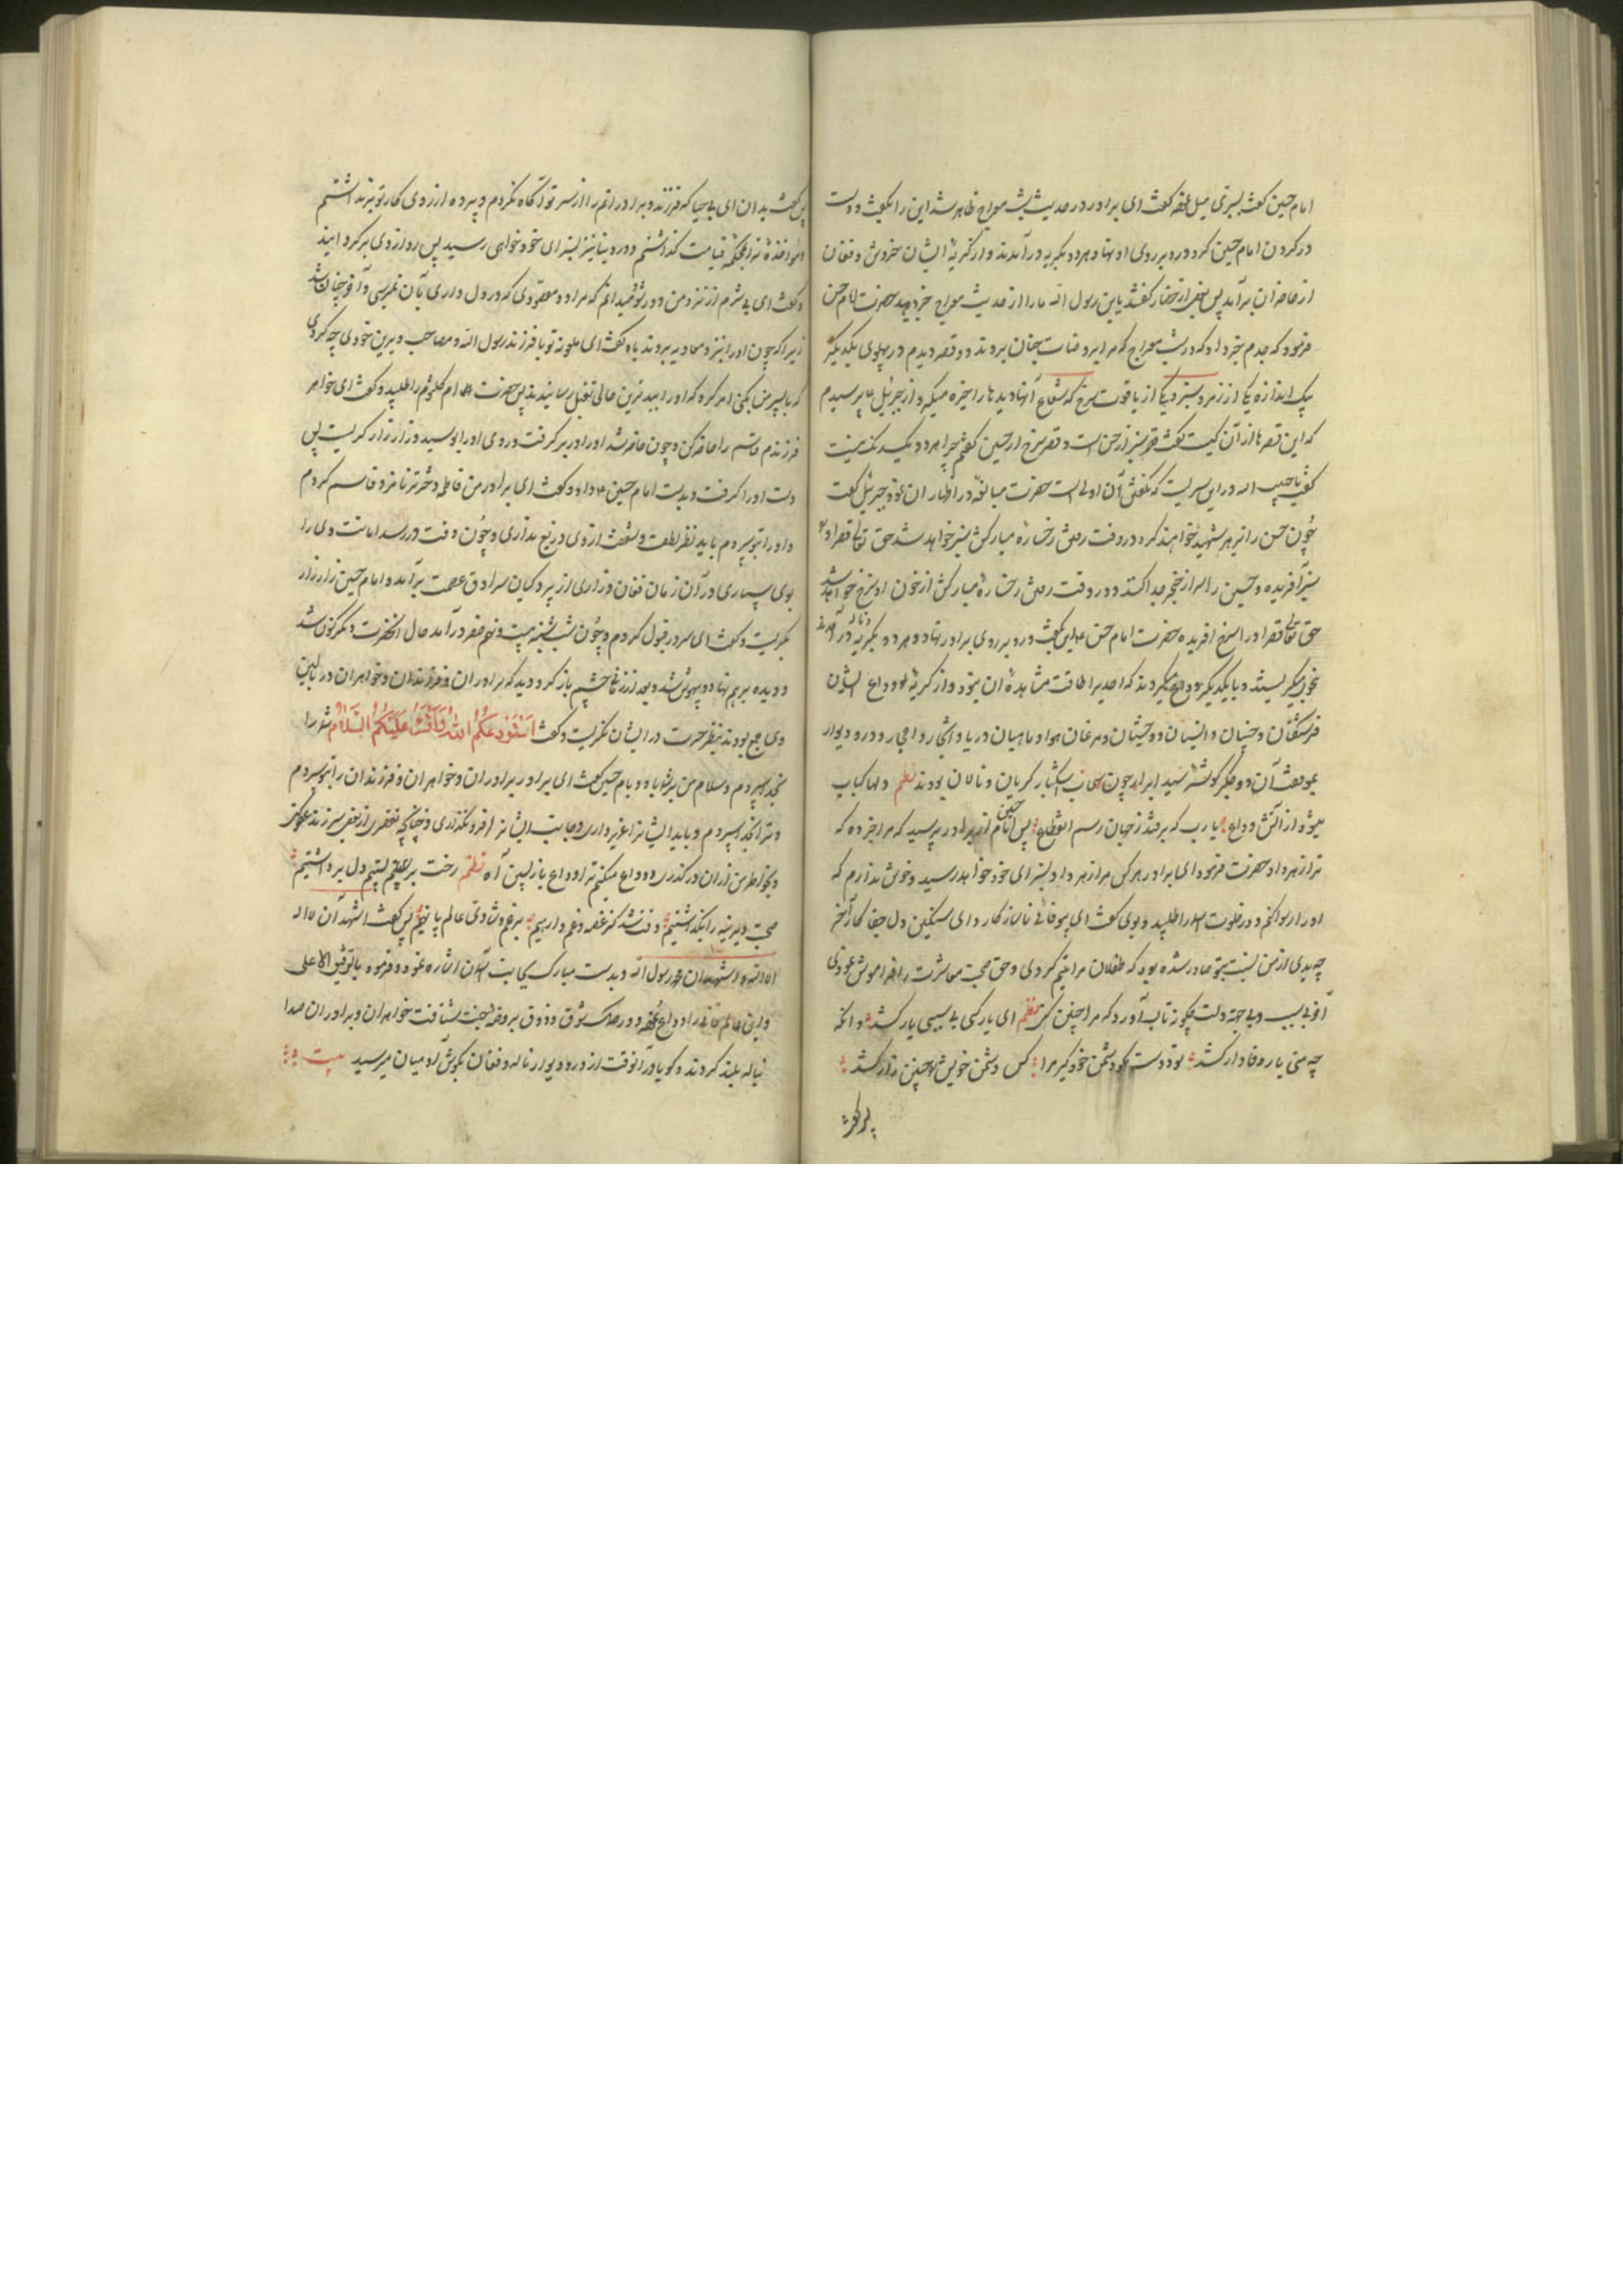 امام حسین گفت بسبزی میل نمود گفت ای برادر در حدیث شب معراج ظاهر شد این را بگفت و دست
در گردن امام حسین کرد و رو بر روی او نهاد و هر دو بگریه در آمدند و از گریهٔ ایشان خروش و فغان
از حاضران برآمد پس بعضی از حضار گفتند یا ابن رسول الله ما را از حدیث معراج خبر دهید حضرت امام حسن
فرمود که جدم خبر داد که در شب معراج که مرا بروضات جنان بردند دو قصر دیدم در پهلوی یکدیگر
بیک اندازه یکی از زمرد سبز و یکی از یاقوت سرخ که شعاع آنها دیدها را خیره میکرد از جبرئیل پرسیدم
که این قصرها از آن کیست گفت قصر سبز از حسن است و قصر سرخ از حسین گفتم چرا هر دو بیک رنگ نیست
گفت یا حبیب الله در این سریست که نگفتن آن اولی است حضرت مبالغه در اظهار آن نمود جبرئیل گفت
چون حسن را بزهر شهید خواهند کرد و در وقت رحلت رخسارهٔ مبارکش سبز خواهد شد حق تعالی قصر او
سبز آفریده و حسین را سر از خنجر جدا کنند و در وقت رحلت رخسارهٔ مبارکش از خون او سرخ خواهد شد
حق تعالی قصر او را سرخ آفریده حضرت امام حسن این بگفت و رو بر روی برادر نهاد و هر دو بگریه و ناله در آمدند
و با یکدیگر وداع میکردند که احدیرا طاقت مشاهدهٔ آن نبود و از گریه و وداع ایشان
فرشتگان و جنیان و انسیان و وحشیان و مرغان هوا و ماهیان دریا و اشجار و احجار و در و دیوار
بموافقت آن دو جگرگوشهٔ سید ابرار چون سحاب اشکبار گریان و نالان بودند نظم دلها کباب
میشود از آتش وداع یا رب که برفتد ز جهان رسم انقطاع پس امام حسین از برادر پرسید که مرا خبر ده که
ترا زهر داد حضرت فرمود ای برادر هر کس مرا زهر داد بسزای خود خواهد رسید و خوش ندارم که
او را رسوا کنم و در خلوت او را طلبید و بوی گفت ای بیوفای نابکار و ای سنگین دل جفاکار آخر
چه بدی از من نسبت بتو صادر شده بود که طفلان مرا یتیم کردی و حق صحبت معاشرت را فراموش نمودی
آخر بی سبب و بی جهة دلت چگونه تاب آورد که مرا چنین کشی نظم ای یار کسی بی سببی یار کشد وانگه
چه منی یار وفادار کشد تو دوست نمود دشمن خود گیر مرا کس دشمن خویش را چنین زار کشد
پس گفت بدان ای بی حیا که فرزند و برادرانم را از سر تو آگاه نکردم و پرده از روی کار تو برنداشتم
و مؤاخذهٔ ترا بمحکمهٔ قیامت گذاشتم و در دنیا نیز بسزای خود خواهی رسید پس رو از وی برگردانید
و گفت ای بی شرم از نزد من دور شو که مراد و مقصودی که در دل داری بآن نمیرسی و آخر چنان شد
زیرا که چون او را نزد معاویه بردند باو گفت ای ملعونه تو با فرزند رسول الله و مصاحب دیرین خود چه کردی
که با پسر من کنی امر کرد که او را ببدترین حالی بقتل رسانیدند پس حضرت امام ام کلثوم را طلبید و گفت ای خواهر
فرزندم قاسم را حاضر کن و چون حاضر شد او را در بر گرفت و روی او را بوسید و زار زار گریست پس
دست او را گرفت و بدست امام حسین داد و گفت ای برادر من فاطمه دخترت نامزد قاسم کردم
و او را بتو سپردم باید نظر لطف و شفقت از وی دریغ نداری و چون وقت در رسد امانت وی را
بوی سپاری در آن زمان فغان و زاری از پردگیان سرادق عصمت برآمد و امام حسین زار زار
بگریست و گفت ای سرور قبول کردم و چون شب شنبه بیست و نهم صفر در آمد حال آنحضرت دگرگون شد
و دیده بر هم نهاد و بیهوش شد و بعد از زمانی چشم باز کرد و دید که برادران و فرزندان و خواهران در بالین
وی جمع بودند بنظر حسرت در ایشان نگریست و گفت استودعکم الله و علیکم السلام شما را
بخدا سپردم و سلام من بر شما باد و بامام حسین گفت ای برادر برادران و خواهران و فرزندان را بتو سپردم
و ترا بخدا سپردم و باید ایشانرا عزیز داری و جانب ایشانرا فرو نگذاری و چنانچه تقصیری از بعضی سر زند عفو کن
و بخاطر من از آن درگذری و وداع میکنم ترا وداع بازپسین آه نظم رخت بر بستیم و دل برداشتیم
صحبت دیرینه را بگذاشتیم وقت شد کز غصه و غم وارهیم پس گفت اشهد ان لا اله
الا الله و اشهد ان محمدا رسول الله و بدست مبارک بجانب آسمان اشاره نمود و فرمود یا رفیق الاعلی
و این عالم فانی را وداع نموده و در مسالک شوق و ذوق بروضهٔ جنت شتافت خواهران و برادران صدا
بناله بلند کردند و گویا در آنوقت از در و دیوار ناله و فغان بگوش آدمیان میرسید بیت